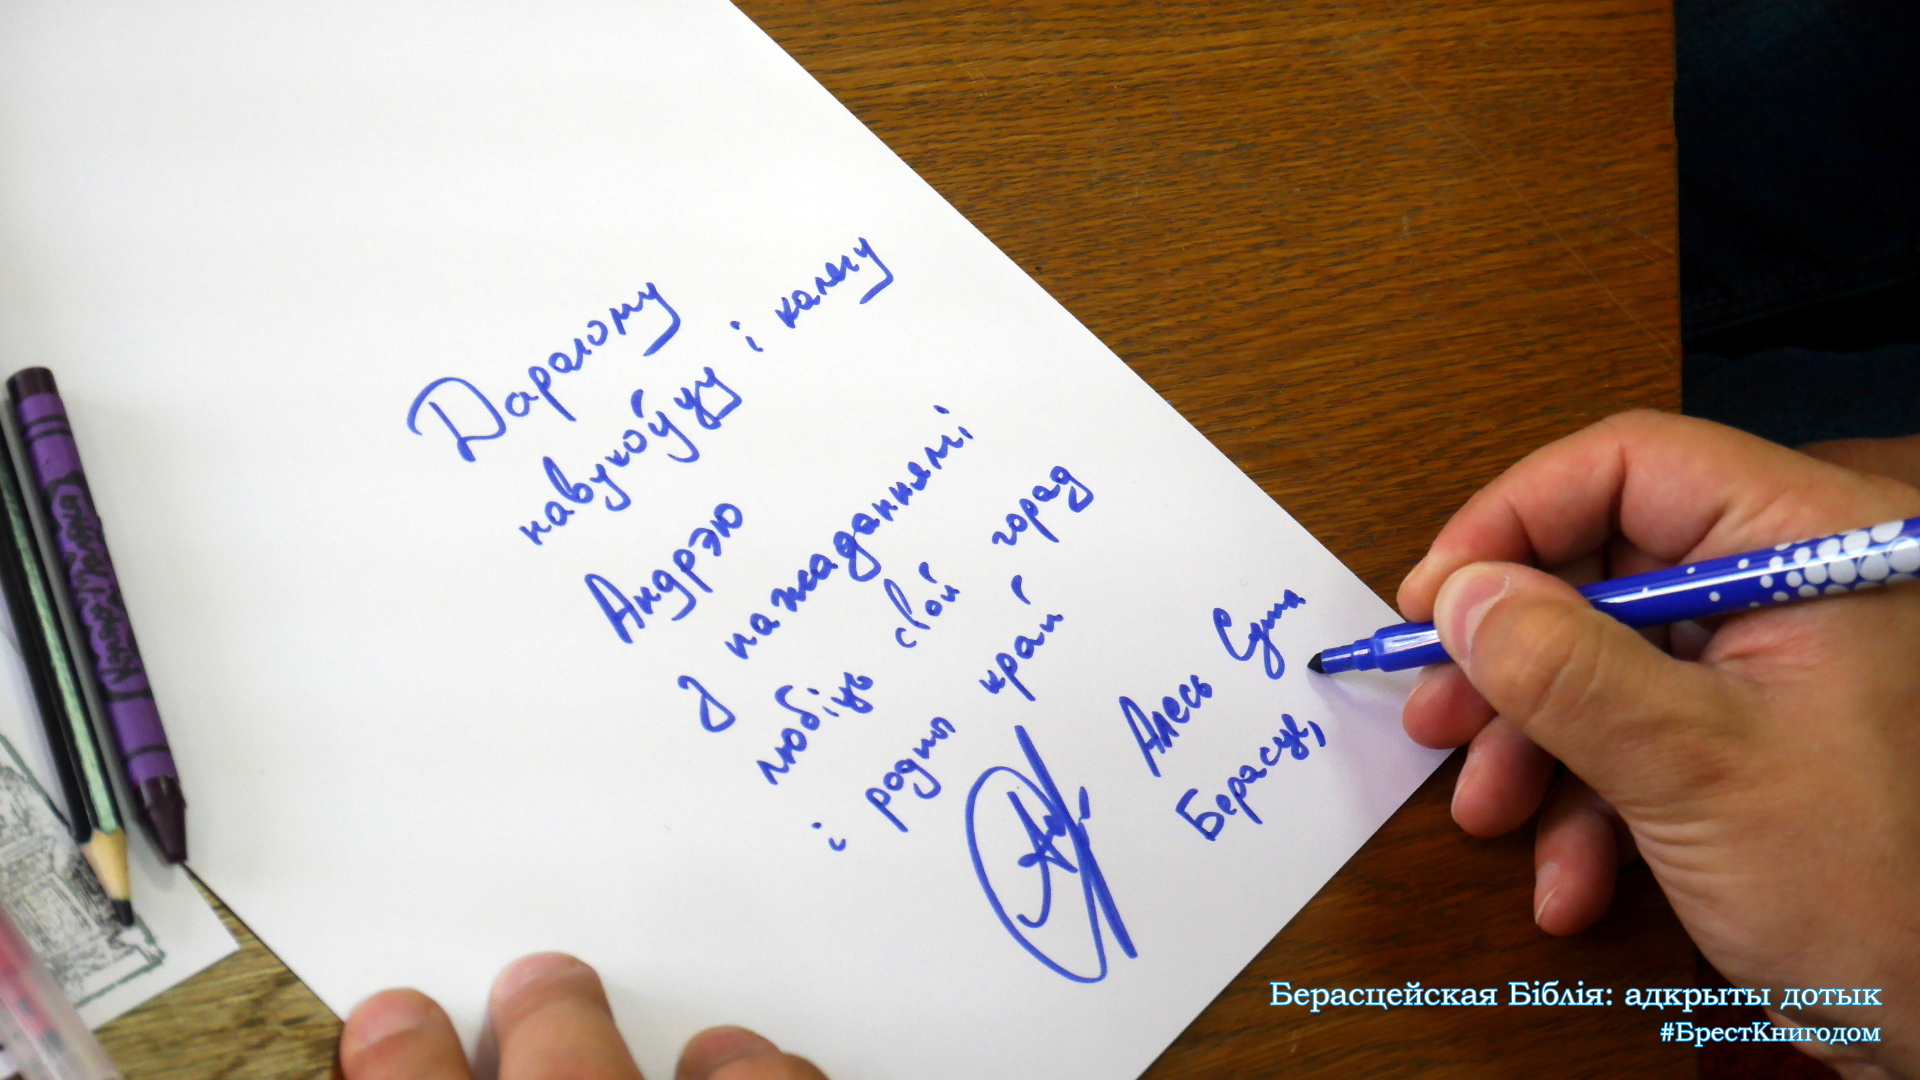 Дарагому
навукоўцу і калегу
Андрэю
з пажаданнямі
любіць свой горад
і родны край
Алесь Суша
Берасце,
Берасцейская Біблія: адкрыты дотык
#БрестКнигодом